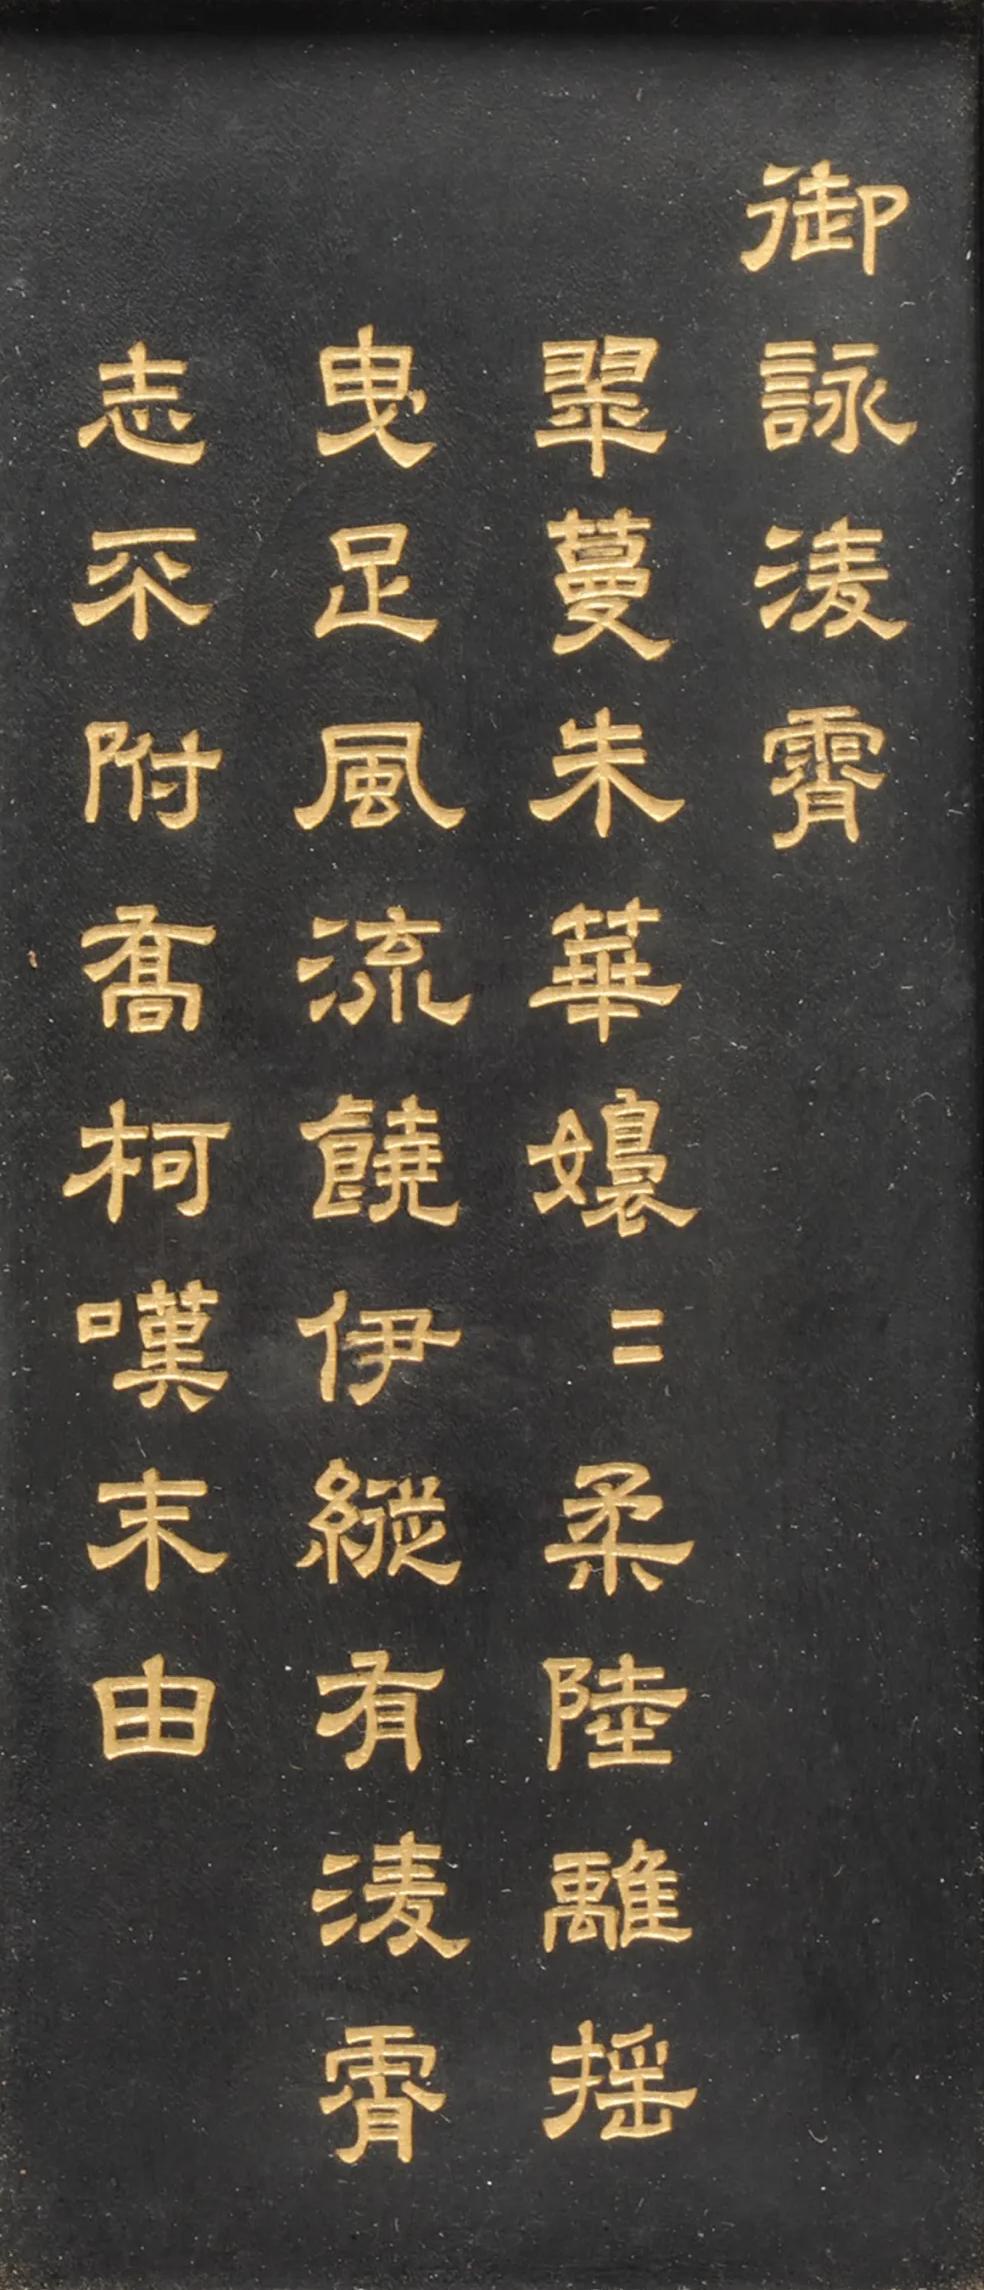 御詠淩霄
翠蔓朱華嬝〻柔陸離搖
曳足風流饒伊縱有淩霄
志不附喬柯嘆末由